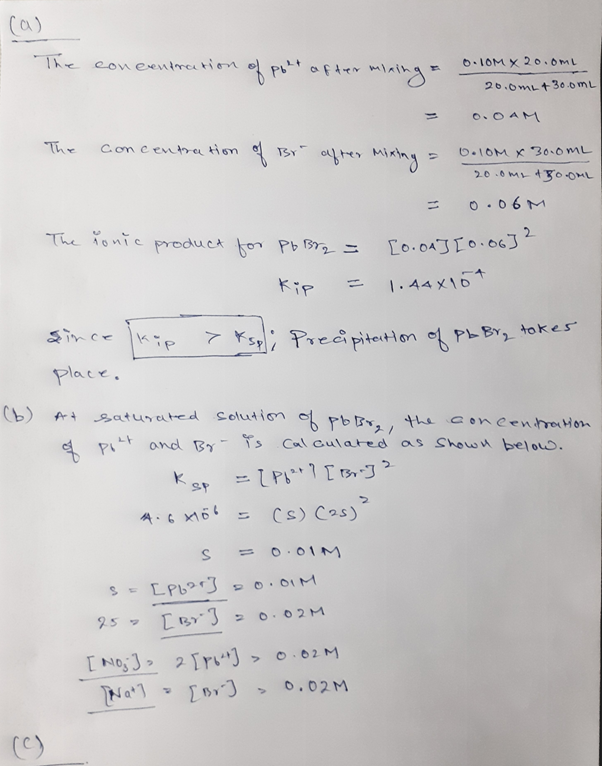 (a)
The concentration of Pb²⁺ after mixing = 0.10M × 20.0mL / 20.0mL + 30.0mL
= 0.04M
The concentration of Br⁻ after Mixing = 0.10M × 30.0mL / 20.0mL + 30.0mL
= 0.06M
The ionic product for PbBr₂ = [0.04][0.06]²
Kip = 1.44×10⁻⁴
Since Kip > Ksp; Precipitation of PbBr₂ takes
place.
(b) At saturated solution of PbBr₂, the concentration
of Pb²⁺ and Br⁻ is calculated as shown below.
Ksp = [Pb²⁺][Br⁻]²
4.6×10⁻⁶ = (S)(2S)²
S = 0.01M
S = [Pb²⁺] = 0.01M
2S = [Br⁻] = 0.02M
[NO₃⁻] = 2[Pb²⁺] = 0.02M
[Na⁺] = [Br⁻] = 0.02M
(C)